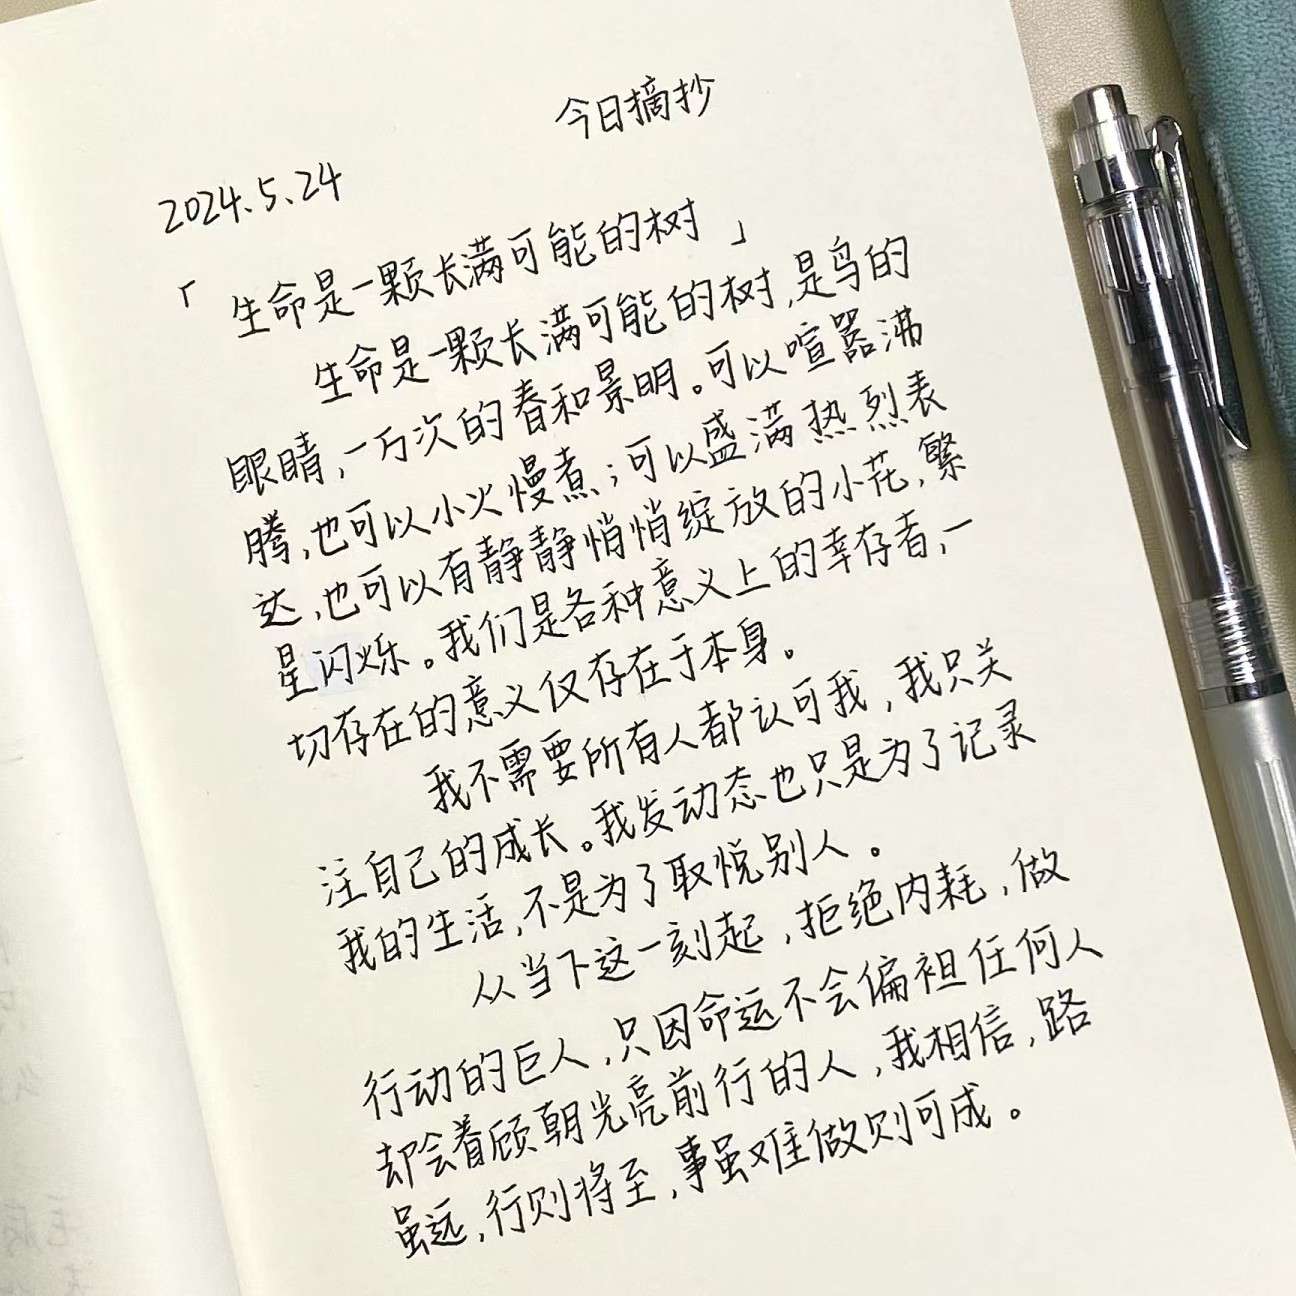 今日摘抄
2024.5.24
「生命是一颗长满可能的树」
生命是一颗长满可能的树,是鸟的
眼睛,一万次的春和景明。可以喧嚣沸
腾,也可以小火慢煮;可以盛满热烈表
达,也可以有静静悄悄绽放的小花,繁
星闪烁。我们是各种意义上的幸存者,一
切存在的意义仅存在于本身。
我不需要所有人都认可我,我只关
注自己的成长。我发动态也只是为了记录
我的生活,不是为了取悦别人。
从当下这一刻起,拒绝内耗,做
行动的巨人,只因命运不会偏袒任何人
却会着顾朝光亮前行的人,我相信,路
虽远,行则将至,事虽难做则可成。